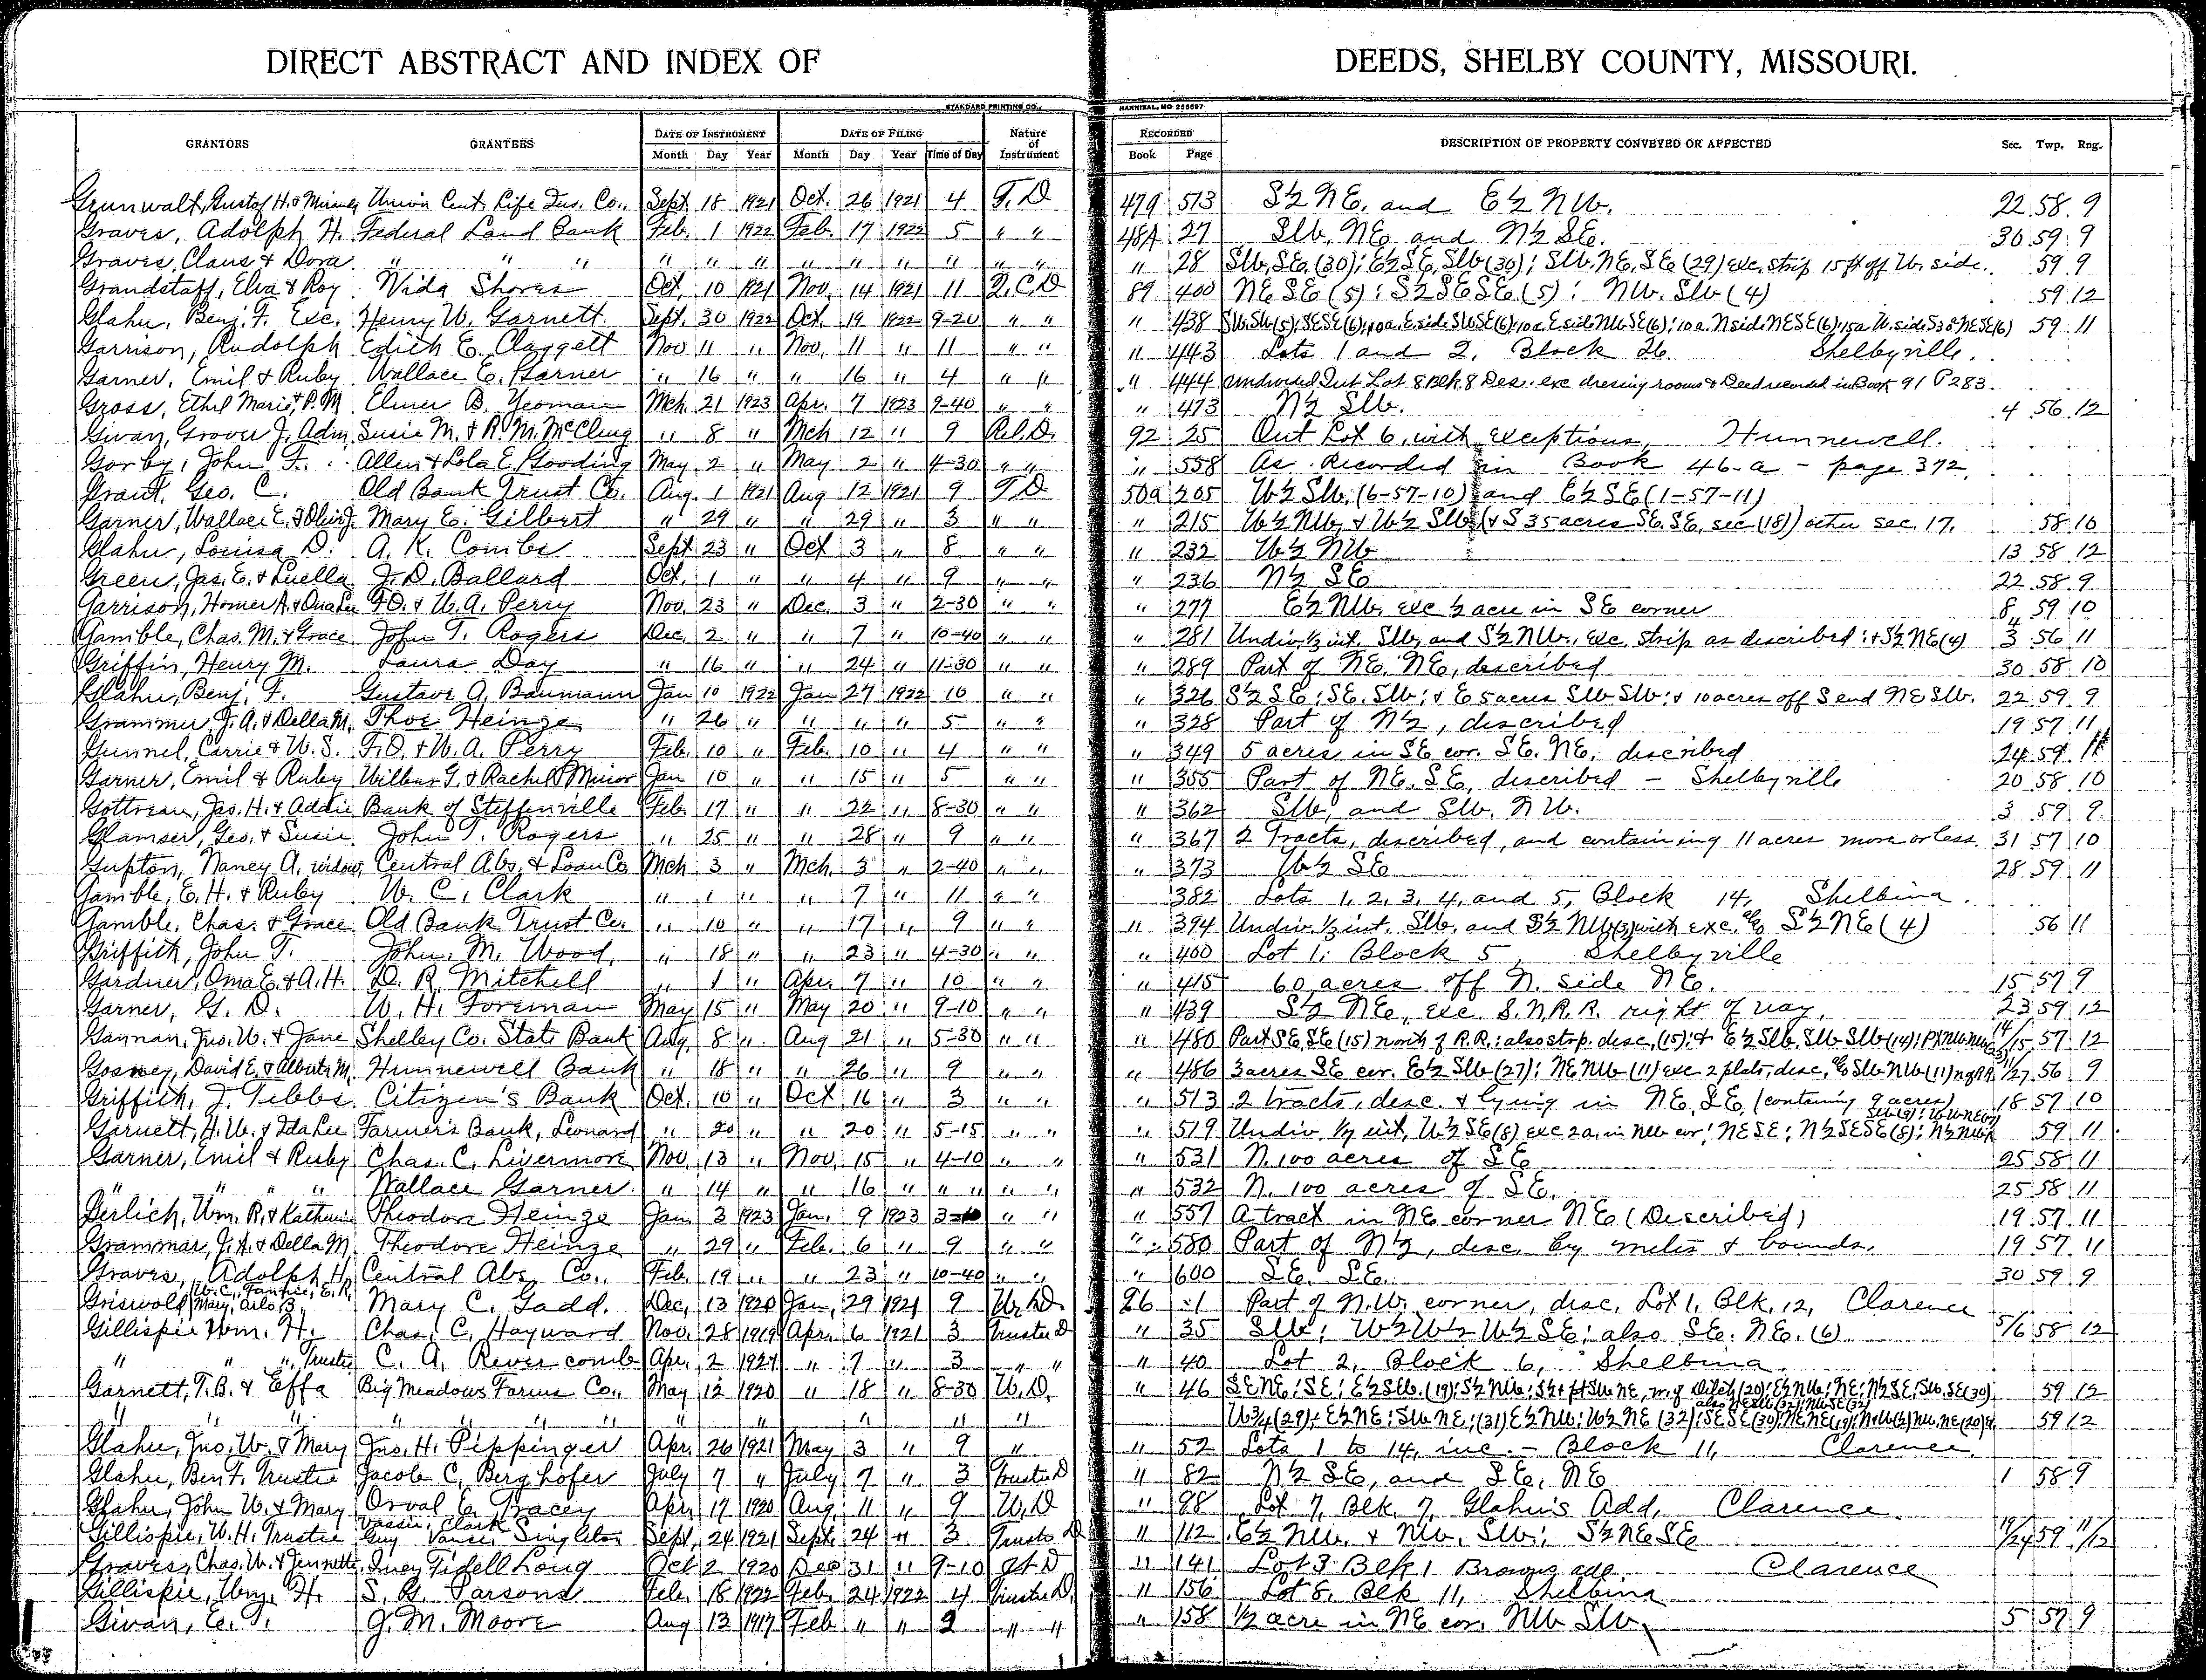 DIRECT ABSTRACT AND INDEX OF DEEDS, SHELBY COUNTY, MISSOURI.
STANDARD PRINTING CO., HANNIBAL, MO 256697
GRANTORS GRANTEES DATE OF INSTRUMENT DATE OF FILING Nature of Instrument RECORDED DESCRIPTION OF PROPERTY CONVEYED OR AFFECTED Sec. Twp. Rng.
Month Day Year Month Day Year Time of Day Book Page
Grunwalt, Gustof H. & Union Cent. Life Ins. Co., Sept. 18 1921 Oct. 26 1921 4 T. D 513 S½ NE. and E½ NW. 22 58 9
Graves, Adolph H. Federal Land Bank Feb. 1 1922 Feb. 17 1922 5 " " 48A 27 SW. NE and N½ SE. 30 59 9
Graves, Claus & Dora " " " " " " " " " " " " " 28 SW. SE. (30); E½ SE. SW (30); SW. NE. SE (29) exc. strip 15 ft off W. side. 59 9
Grandstaff, Elva & Roy Vida Shores Oct. 10 1921 Nov. 14 1921 11 Q. C D 89 400 NE SE (5); S½ SE SE (5); NW. SW (4) 59 12
Glahn, Benj. F. Exc. Henry W. Garnett Sept. 30 1922 Oct. 19 1922 9-20 " " " 438 SW. SW (5); SE SE (6); 10a. E side SW SE (6); 10a. E side NW SE (6); 10a. N side NE SE (6); 15a W. side S 30 NE SE (6) 59 11
Garrison, Rudolph Edith E. Claggett Nov 11 " Nov. 11 " 11 " " " 443 Lots 1 and 2, Block 26. Shelbyville.
Garner, Emil & Ruby Wallace E. Garner " 16 " " 16 " 4 " " " 444 Undivided Int Lot 8 Blk 8 Des. exc dressing rooms & Deed recorded in Book 91 P 283.
Gross, Ethel Marie & P. M Elmer B. Yeoman Mch. 21 1923 Apr. 7 1923 9-40 " " " 473 N½ SW. 4 56 12
Givan, Grover J. Adm Susie M. & R. M. McClung " 8 " Mch 12 " 9 Rel. D. 92 25 Out Lot 6, with exceptions, Hunnewell.
Gorby, John F. Allen & Lola E. Gooding May 2 " May 2 " 4-30 " " " 558 As Recorded in Book 46-a - page 372.
Grant, Geo. C. Old Bank Trust Co. Aug. 1 1921 Aug 12 1921 9 T D 50a 205 W½ SW. (6-57-10) and E½ SE (1-57-11)
Garner, Wallace E. & Mary E. Gilbert " 29 " " 29 " 3 " " " 215 W½ NW. & W½ SW (& S 35 acres SE. SE. sec (18)) other sec. 17. 58 10
Glahn, Louisa D. A. K. Combs Sept 23 " Oct 3 " 8 " " " 232 W½ NW 13 58 12
Green, Jas. E. & Luella J. D. Ballard Oct. 1 " " 4 " 9 " " " 236 N½ SE 22 58 9
Garrison, Homer A. & F.O. & W. A. Perry Nov. 23 " Dec. 3 " 2-30 " " " 277 E½ NW. exc ½ acre in SE corner 8 59 10
Gamble, Chas. M. & Grace John T. Rogers Dec. 2 " " 7 " 10-40 " " " 281 Undiv. ½ int. SW. and S½ NW., exc. strip as described; & S½ NE (4) 3 4 56 11
Griffin, Henry M. Laura Day " 16 " " 24 " 11-30 " " " 289 Part of NE. NE, described 30 58 10
Glahn, Benj. F. Gustave A. Baumann Jan 10 1922 Jan 27 1922 10 " " " 326 S½ SE; SE. SW; & E 5 acres SW SW; & 10 acres off S end NE SW. 22 59 9
Grammer, J. A. & Della M. Thos Heinze " 26 " " " " 5 " " " 328 Part of N½, described 19 57 11
Gunnel, Carrie & W. S. F. O. & W. A. Perry Feb. 10 " Feb. 10 " 4 " " " 349 5 acres in SE cor. SE. NE, described 24 59 11
Garner, Emil & Ruby Wilbur G. & Rachel Minor Jan 10 " " 15 " 5 " " " 355 Part of NE. SE, described - Shelbyville 20 58 10
Gottreau, Jas. H. & Addie Bank of Steffenville Feb. 17 " " 22 " 8-30 " " " 362 SW, and SW. NW. 3 59 9
Glamser, Geo. & Susie John T. Rogers " 25 " " 28 " 9 " " " 367 2 Tracts, described, and containing 11 acres more or less. 31 57 10
Gupton, Nancy A. widow Central Abs. & Loan Co Mch 3 " Mch. 3 " 2-40 " " " 373 W½ SE 28 59 11
Gamble, E. H. & Ruby W. C. Clark " 1 " " 7 " 11 " " 382 Lots 1, 2, 3, 4, and 5, Block 14, Shelbina.
Gamble, Chas. & Grace Old Bank Trust Co. " 10 " " 17 " 9 " " " 394 Undiv. ½ int. SW. and S½ NW (3) with exc. S½ NE (4) 56 11
Griffith, John T. John M. Wood, " 18 " " 23 " 4-30 " " " 400 Lot 1, Block 5, Shelbyville
Gardner, Oma E. & A. H. D. R. Mitchell " 1 " Apr. 7 " 10 " " " 415 60 acres off N. side NE. 15 57 9
Garner, G. D. W. H. Foreman May 15 " May 20 " 9-10 " " " 439 S½ NE, exc. S. N. R. R. right of way. 23 59 12
Gannan, Jno. W. & Jane Shelby Co. State Bank Aug. 8 " Aug 21 " 5-30 " " " 480 Part SE. SE (15) north of R.R.; also strp. desc. (15); & E½ SW. SW SW (14); 14/15 57 12
Gosney, David E. & Alberta M. Hunnewell Bank " 18 " " 26 " 9 " " " 486 3 acres SE cor. E½ SW (27); NE NW (11) exc 2 plats, desc, SW NW (11) 11/27 56 9
Griffith, J. Tibbs Citizen's Bank Oct. 10 " Oct 16 " 3 " " " 513 2 tracts, desc. & lying in NE. SE. (containing 9 acres) 18 57 10
Garnett, H. W. & Ida Lee Farmer's Bank, Leonard " 20 " " 20 " 5-15 " " " 519 Undiv. ½ int. W½ SE (8) exc 2a. in NW cor; NE SE; N½ SE SE (8); 59 11
Garner, Emil & Ruby Chas. C. Livermore Nov 13 " Nov. 15 " 4-10 " " " 531 N. 100 acres of SE 25 58 11
" " " " Wallace Garner " 14 " " 16 " " " " " " 532 N. 100 acres of SE. 25 58 11
Gerlich, Wm. R. & Katherine Theodore Heinze Jan. 3 1923 Jan. 9 1923 " " " 557 A tract in NE corner NE (Described) 19 57 11
Grammar, J. A. & Della M. Theodore Heinze " 29 " Feb. 6 " 9 " " " 580 Part of N½, desc. by metes & bounds. 19 57 11
Graves, Adolph H. Central Abs. Co. Feb. 19 " " 23 " 10-40 " " " 600 SE. SE. 30 59 9
Griswold W. C., Fannie, E. R, Mary, Arlo B. Mary C. Gadd. Dec. 13 1920 Jan. 29 1921 9 W. D. 96 1 Part of N.W. corner, desc. Lot 1, Blk. 12, Clarence
Gillispie Wm. H. Chas. C. Hayward Nov. 28 1919 Apr. 6 1921 3 Trustee D " 35 SW; W½ W½ W½ SE; also SE. NE. (6). 5/6 58 12
" " " Trustee C. A. Rivercomb Apr. 2 1921 " 7 " 3 " " " 40 Lot 2, Block 6, Shelbina.
Garnett, T. B. & Effa Big Meadows Farms Co., May 12 1920 " 18 " 8-30 W. D. " 46 SE NE; SE; E½ SW. (19); S½ NW; S½ & pt SW NE, W. of Ditch (20); E½ NW; NE; N½ SE; SW. SE (30) 59 12
" " " " " " " " " " " " also NE SW (32); NW SE (32) W¾ (29); E½ NE; SW NE; (31) E½ NW; W½ NE (32); SE SE (30); 59 12
Glahn, Jno. W. & Mary Jno. H. Pippinger Apr. 26 1921 May 3 " 9 " " 52 Lots 1 to 14, inc. - Block 11, Clarence.
Glahn, Ben F. Trustee Jacob C. Berghofer July 7 " July 7 " 3 Trustee D " 82 N½ SE, and SE. NE 1 58 9
Glahn, John W. & Mary Orval E. Tracey Apr. 17 1920 Aug. 11 " 9 W. D " 98 Lot 7, Blk. 7, Glahn's Add, Clarence.
Gillispie, W. H. Trustee Vassie, Clark Guy Vance Singleton Sept. 24 1921 Sept. 24 " 3 D " 112 E½ NW. & NW. SW; S½ NE SE 19/24 59 11/12
Graves, Chas. W. & Jennette, Fidell Long Oct 2 1920 Dec 31 " 9-10 D " 141 Lot 3 Blk 1 Browns add. Clarence
Gillispie, Wm. H. S. G. Parsons Feb. 18 1922 Feb. 24 1922 4 Trustee D. " 156 Lot 8, Blk 11, Shelbina
Givan, E. T. J. M. Moore Aug 13 1917 Feb " " 2 " " " 158 ½ acre in NE cor. NW SW. 5 57 9